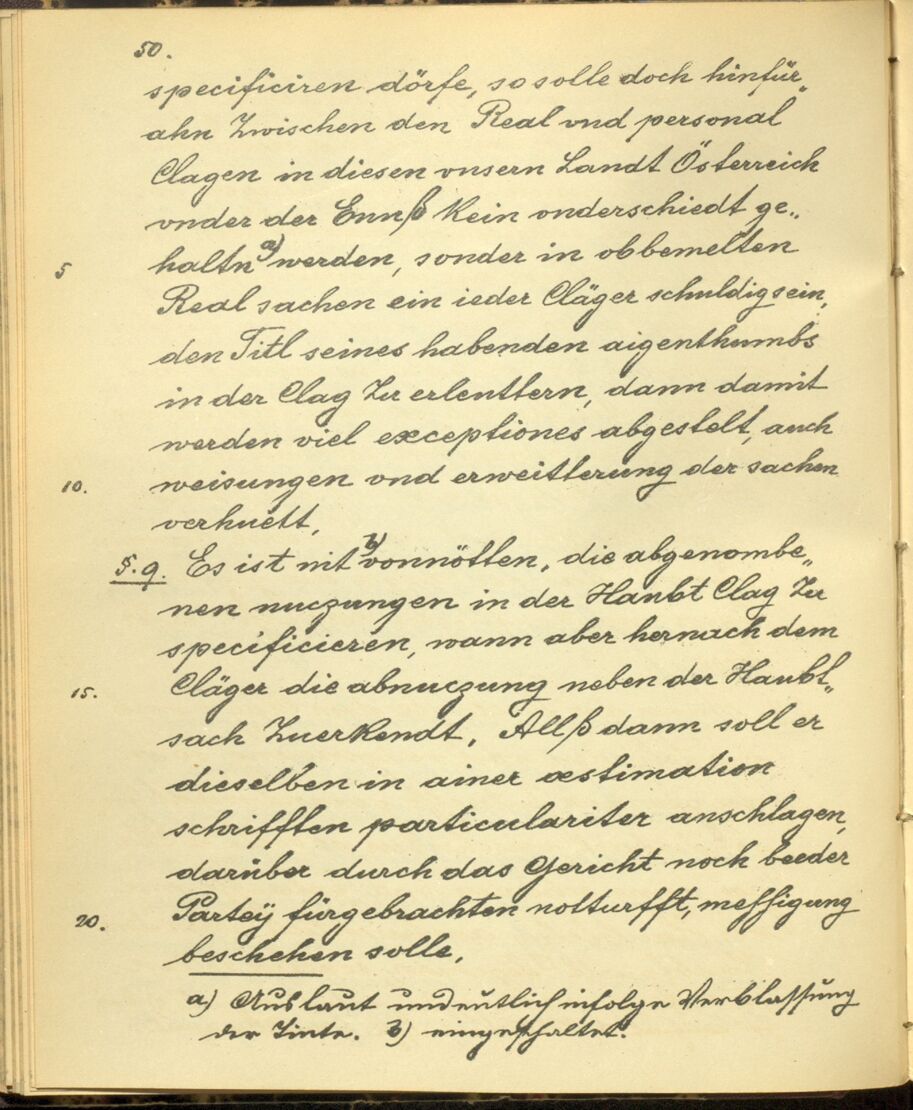 50.
specificiren dörfe, so solle doch hinfür„
ahn Zwischen den Real vnd personal
Clagen in diesen vnsern Landt Österreich
vnder der Ennß Kein vnderschiedt ge„
5 haltn a) werden, sonder in obbemelten
Real sachen ein ieder Cläger schuldig sein,
den Titl seines habenden aigenthumbs
in der Clag Zu erleuttern, dann damit
werden viel exceptiones abgestelt, auch
10. weisungen vnd erweitterung der sachen
verhuett,
§. 9. Es ist nit b) vonnötten, die abgenombe„
nen nuczungen in der Haubt Clag Zu
specificieren, wann aber hernach dem
15. Cläger die abnuczung neben der Haubt„
sach Zuerkendt, Allß dann soll er
dieselben in ainer æstimation
schrifften particulariter anschlagen,
darüber durch das Gericht noch beeder
20. Parteÿ fürgebrachten notturfft, messigung
beschehen solle,
a) Auslaut undeutlich infolge Verblassung
der Tinte. b) eingeschaltet.